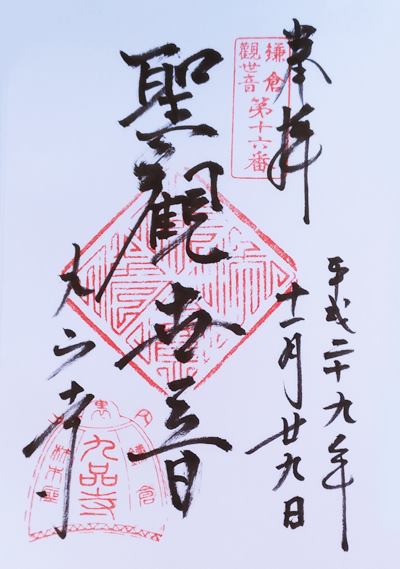 奉拝
鎌倉
觀世音
第十六番
平成二十九年
十一月廿九日
聖觀世音
九品寺
鎌倉
九品寺